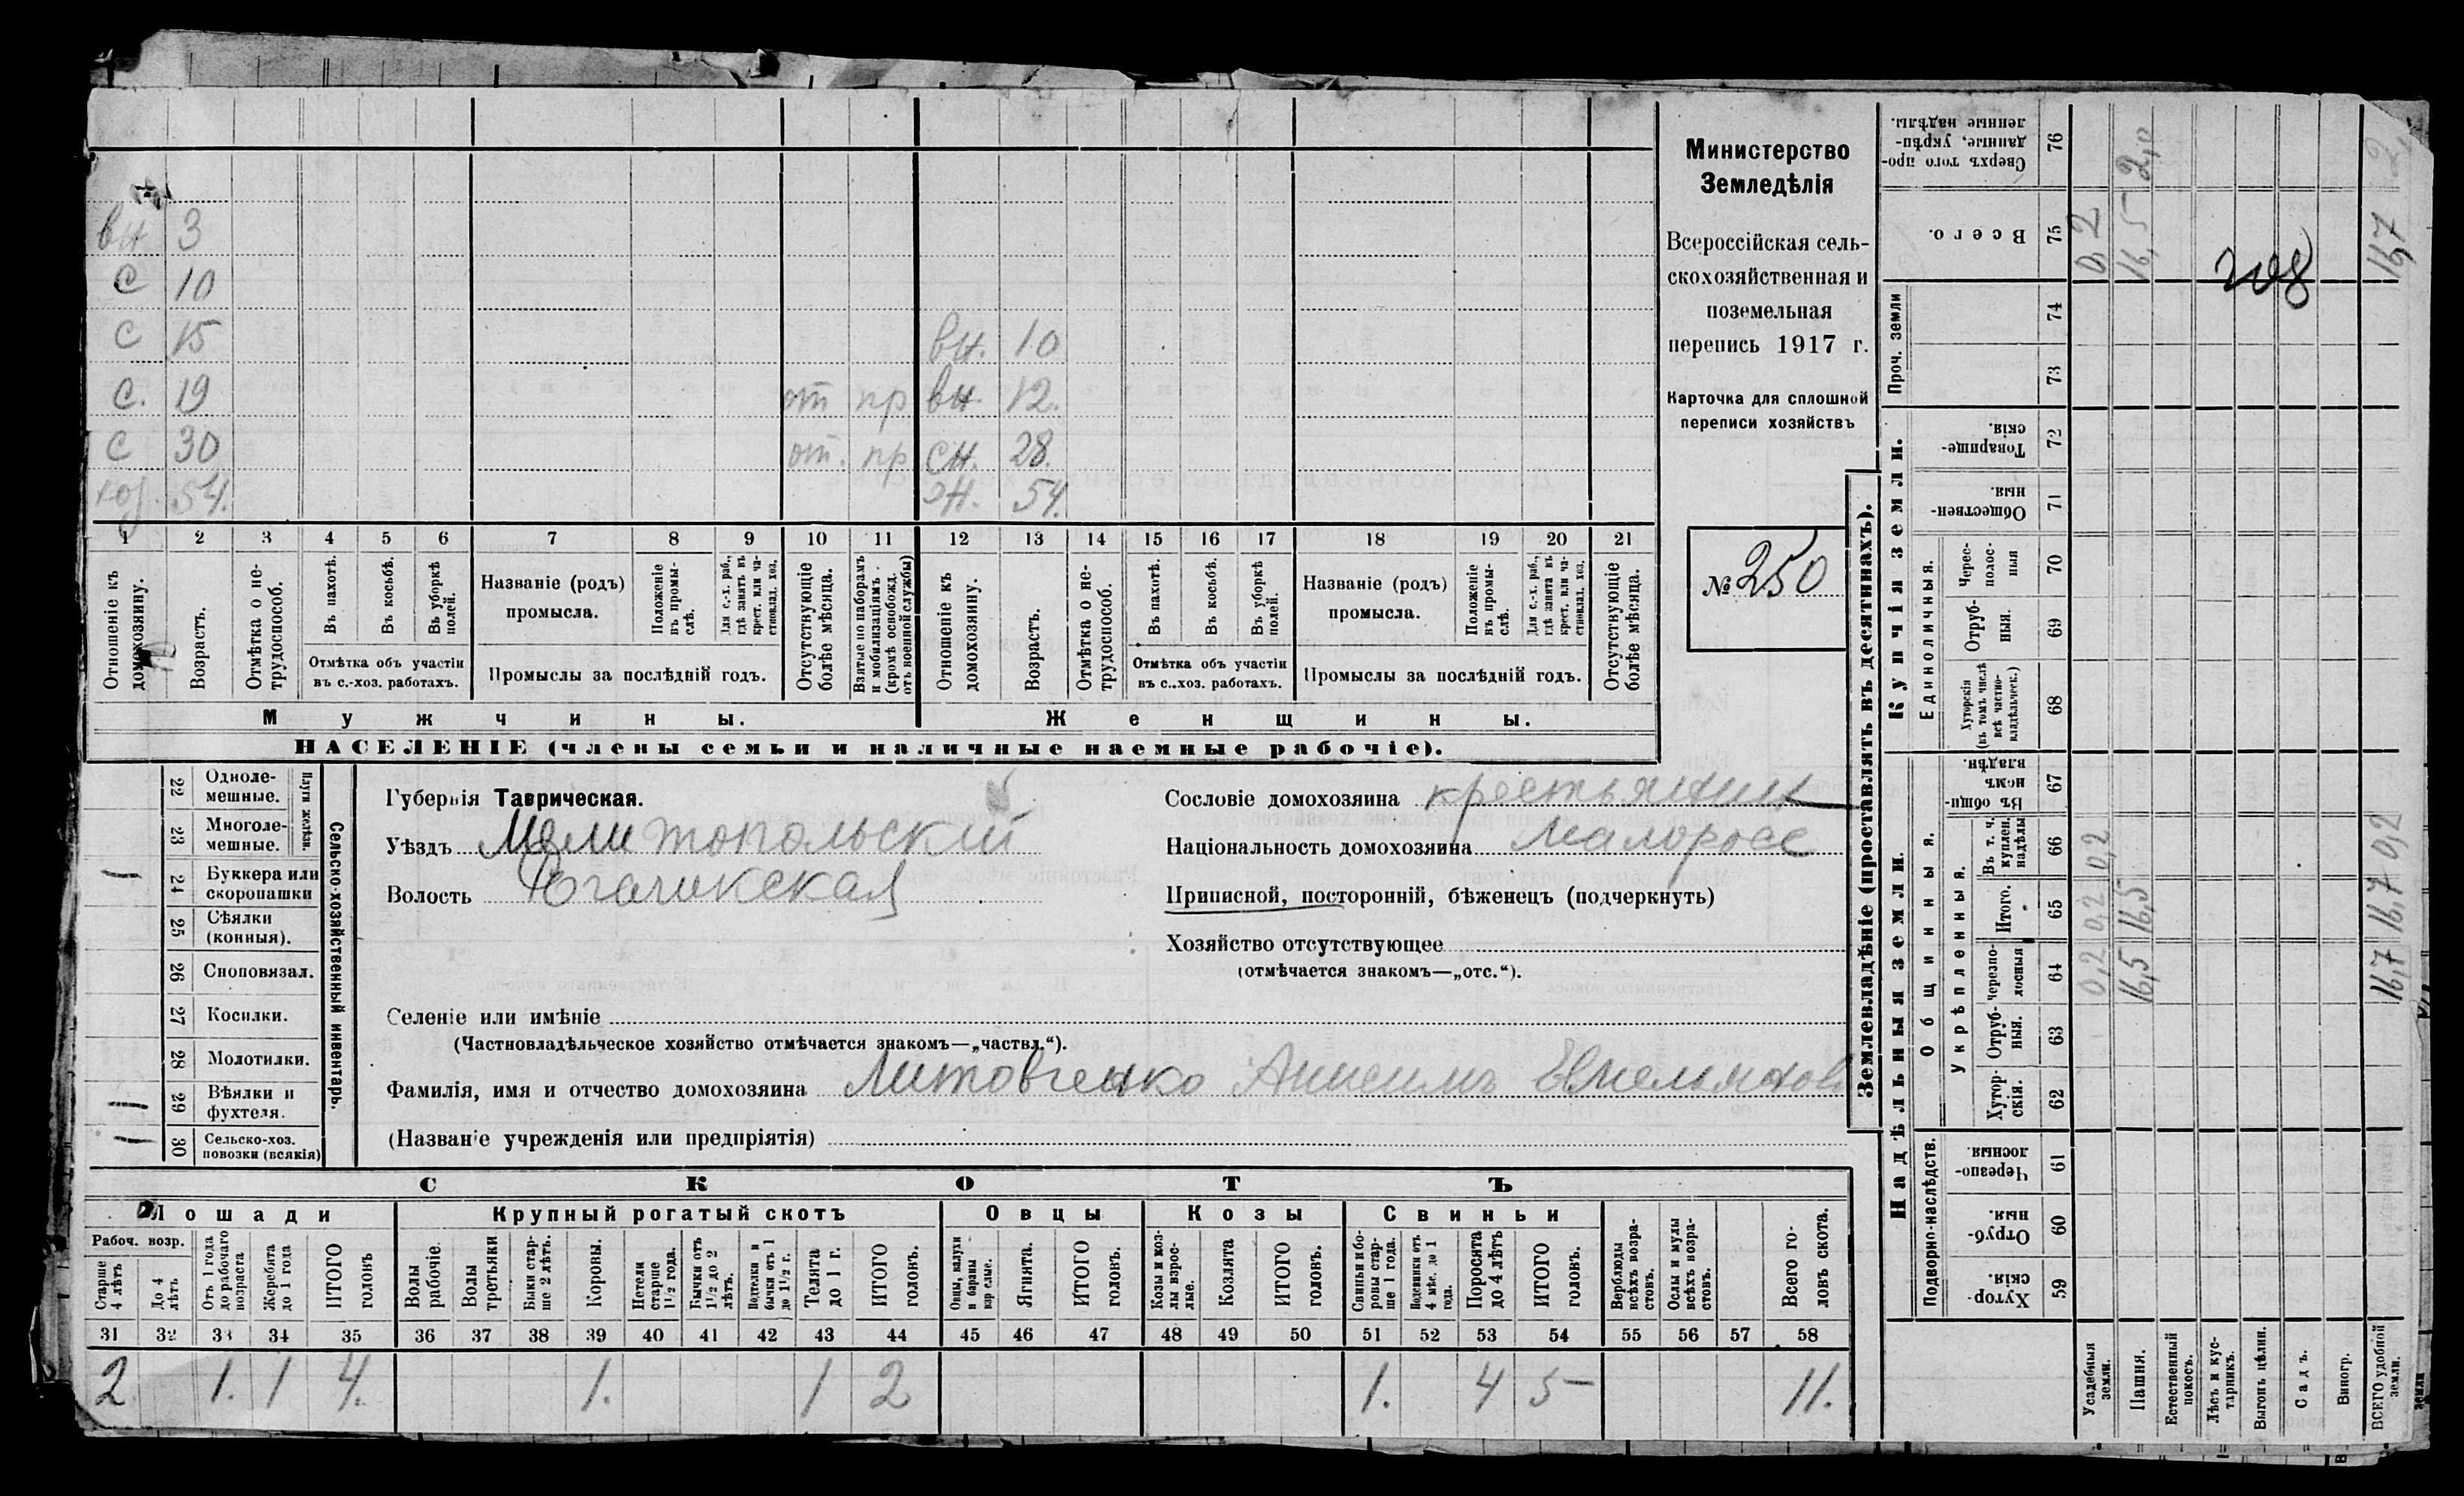 вн 3
с 10
с 15 вн. 10
с. 19 от пр вн. 12.
с 30 от. пр сн. 28.
хоз. 54. 54.
1 2 3 4 5 6 7 8 9 10 11 12 13 14 15 16 17 18 19 20 21
Отношеніе къ домохозяину.
Возрастъ.
Отмѣтка о не-трудоспособ.
Въ пахотѣ.
Въ косьбѣ.
Въ уборкѣ полей.
Отмѣтка объ участіи
въ с.-хоз. работахъ.
Названіе (родъ)
промысла.
Положеніе въ промы-слѣ.
Для с.-х. раб., гдѣ занятъ въ крест. или ча-стновлад. хоз.
Промыслы за послѣдній годъ.
Отсутствующіе болѣе мѣсяца.
Взятые по наборамъ и мобилизаціямъ (кромѣ освобожд. отъ военной службы)
Отношеніе къ домохозяину.
Возрастъ.
Отмѣтка о не-трудоспособ.
Въ пахотѣ.
Въ косьбѣ.
Въ уборкѣ полей.
Отмѣтка объ участіи
въ с.-хоз. работахъ.
Названіе (родъ)
промысла.
Положеніе въ промы-слѣ.
Для с.-х. раб., гдѣ занята въ крест. или ча-стновлад. хоз.
Промыслы за послѣдній годъ.
Отсутствующіе болѣе мѣсяца.
Мужчины.
Женщины.
НАСЕЛЕНІЕ (члены семьи и наличные наемные рабочіе).
Министерство
Земледѣлія
Всероссійская сель-
скохозяйственная и
поземельная
перепись 1917 г.
Карточка для сплошной
переписи хозяйствъ
№ 250
22 Одноле-мешные.
23 Многоле-мешные.
Плуги желѣзн.
24 Буккера или скоропашки
25 Сѣялки (конныя).
26 Сноповязал.
27 Косилки.
28 Молотилки.
29 Вѣялки и фухтеля.
30 Сельско-хоз. повозки (всякія)
Сельско-хозяйственный инвентарь.
Губернія Таврическая.
Уѣздъ Мелитопольский
Волость
Сословіе домохозяина крестьянин
Національность домохозяина малоросс
Приписной, посторонній, бѣженецъ (подчеркнуть)
Хозяйство отсутствующее
(отмѣчается знакомъ—„отс.“).
Селеніе или имѣніе
(Частновладѣльческое хозяйство отмѣчается знакомъ—„частвл.“).
Фамилія, имя и отчество домохозяина Литовченко Анисимъ Емельянов
(Названіе учрежденія или предпріятія)
СКОТЪ
Лошади
Крупный рогатый скотъ
Овцы
Козы
Свиньи
Рабоч. возр.
Старше 4 лѣтъ
До 4 лѣтъ
Отъ 1 года до рабочаго возраста
Жеребята до 1 года
ИТОГО головъ
Волы рабочіе.
Волы третьяки
Быки стар-ше 2 лѣтъ.
Коровы.
Нетели старше 1 1/2 года.
Бычки отъ 1 1/2 до 2 лѣтъ.
Подтелки и бычки отъ 1 до 1 1/2 г.
Телята до 1 г.
ИТОГО головъ.
Овцы, валухи и бараны взрослые.
Ягнята.
ИТОГО головъ.
Козы и коз-лы взрос-лые.
Козлята
ИТОГО головъ.
Свиньи и бо-ровы стар-ше 1 года.
Подсвинки отъ 4 мѣс. до 1 года.
Поросята до 4 лѣтъ
ИТОГО головъ.
Верблюды всѣхъ возра-стовъ.
Ослы и мулы всѣхъ возра-стовъ.
Всего го-ловъ скота.
31 32 33 34 35 36 37 38 39 40 41 42 43 44 45 46 47 48 49 50 51 52 53 54 55 56 57 58
2 1. 1 4. 1. 1 2 1. 4 5 11.
Землевладѣніе (проставлять въ десятинахъ).
Надѣльныя земли.
Купчія земли.
Проч. земли
Подворно-наслѣдств.
Общинныя.
Укрѣпленныя.
Единоличныя.
Сверхъ того про-данные, укрѣп-ленные надѣлы. 76 2,0
Всего. 75 0,2 16,5 16,7
74
73
Товарище-скія. 72
Обществен-ныя. 71
Черес-полос-ныя 70
Отруб-ныя. 69
Хуторскія (въ томъ числѣ всѣ частно-владѣльческ.) 68
Въ общи-номъ владѣн. 67
Въ т. ч. куплен. надѣлы 66 0,2 0,2
Итого. 65 0,2 16,5 16,7
Черезпо-лосныя 64 0,2 16,5 16,7
Отруб-ныя. 63
Хутор-скія. 62
Черезпо-лосныя. 61
Отруб-ныя. 60
Хутор-скія. 59
Усадебныя земли.
Пашня.
Естественный покосъ.
Лѣсъ и кус-тарникъ.
Выгонъ цѣлин.
Садъ.
Виногр.
ВСЕГО удобной земли.